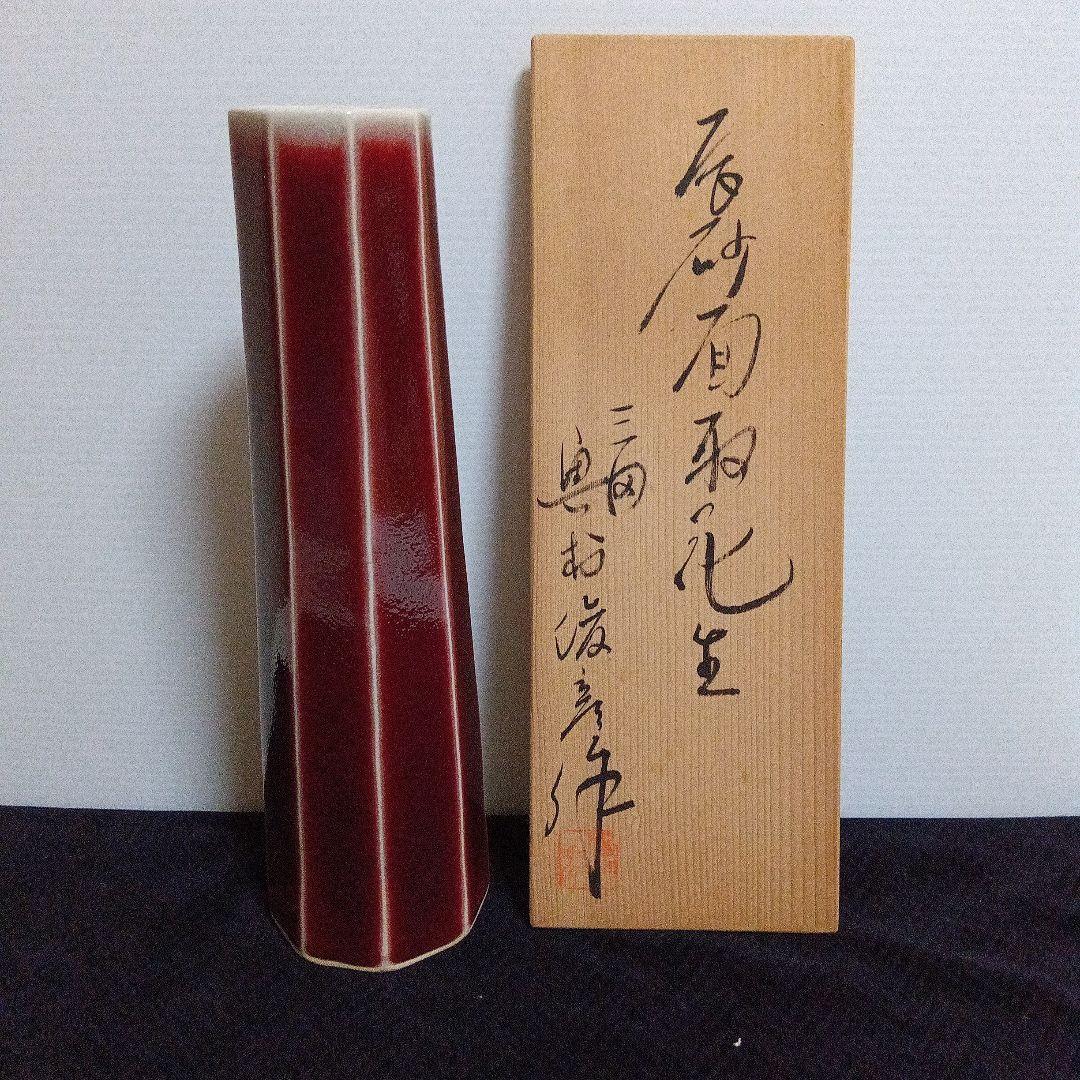 辰砂面取花生
三田
奥村俊彦作